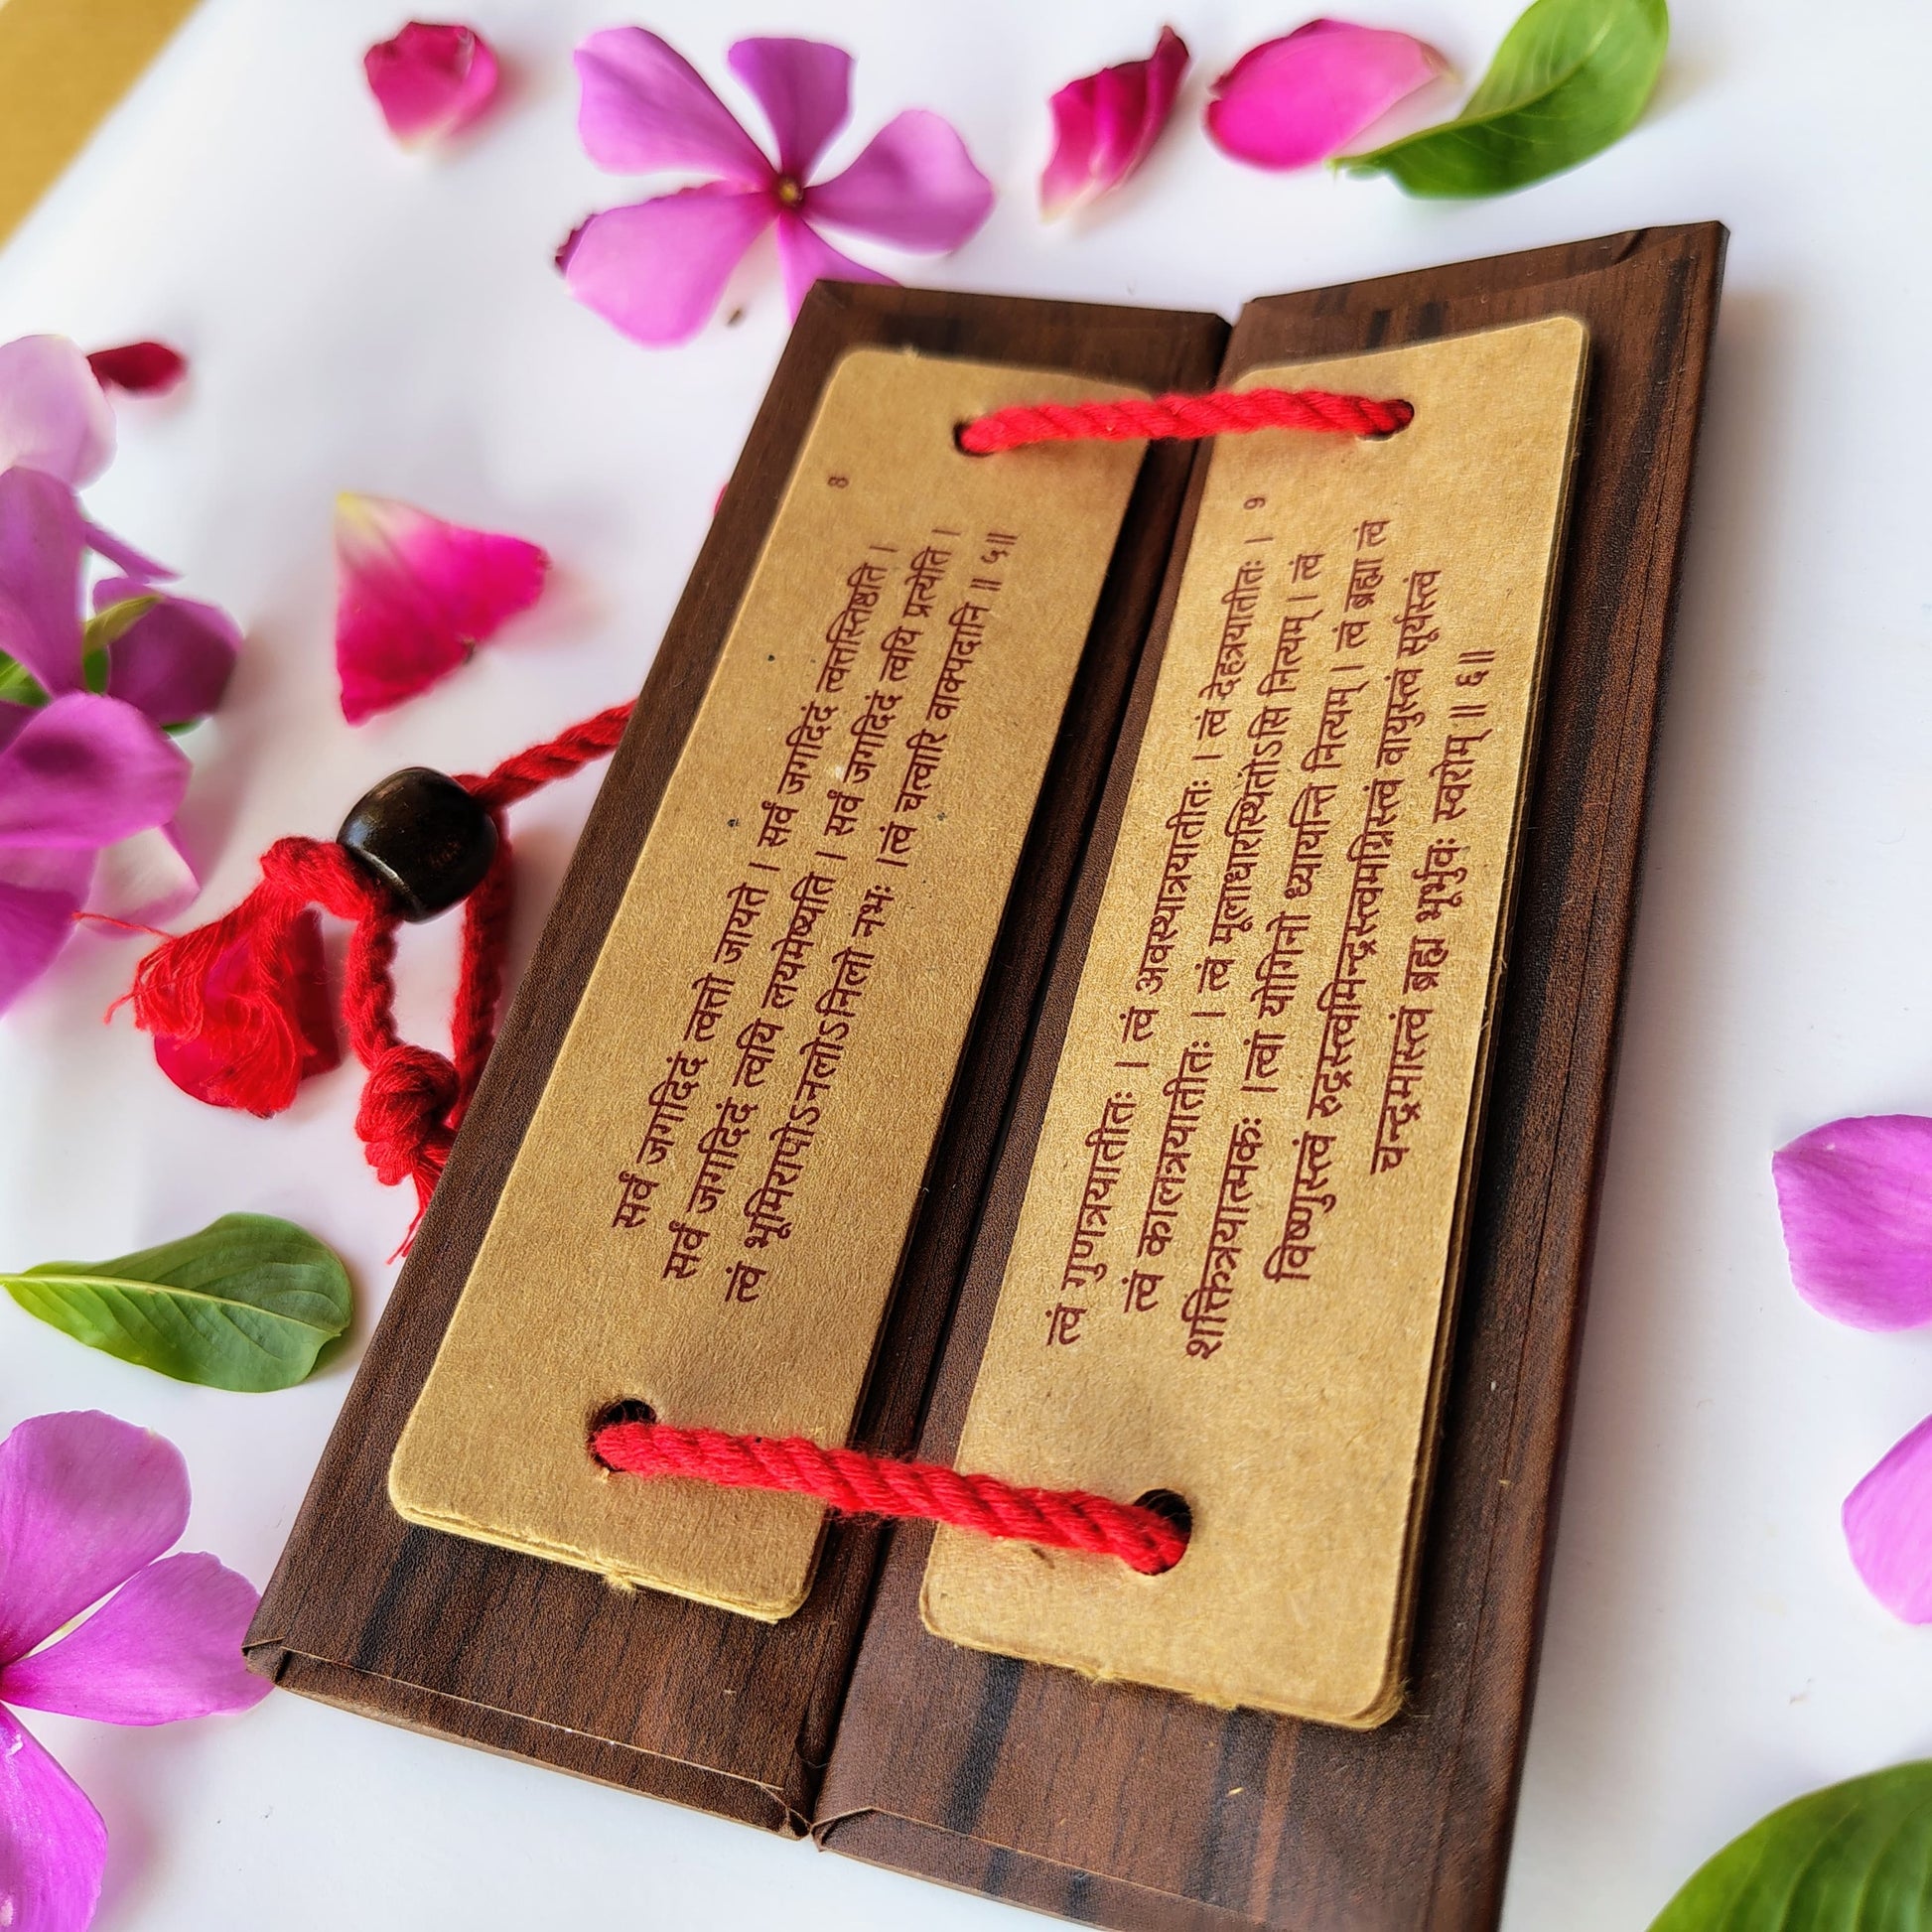 8
सर्वं जगदिदं त्वत्तो जायते । सर्वं जगदिदं त्वत्तस्तिष्ठति ।
सर्वं जगदिदं त्वयि लयमेष्यति । सर्वं जगदिदं त्वयि प्रत्येति ।
त्वं भूमिरापोऽनलोऽनिलो नभः ।त्वं चत्वारि वाक्पदानि ॥ ५॥
9
त्वं गुणत्रयातीतः । त्वं अवस्थात्रयातीतः । त्वं देहत्रयातीतः ।
त्वं कालत्रयातीतः । त्वं मूलाधारस्थितोऽसि नित्यम् । त्वं
शक्तित्रयात्मकः ।त्वां योगिनो ध्यायन्ति नित्यम् । त्वं ब्रह्मा त्वं
विष्णुस्त्वं रुद्रस्त्वमिन्द्रस्त्वमग्निस्त्वं वायुस्त्वं सूर्यस्त्वं
चन्द्रमास्त्वं ब्रह्म भूर्भुवः स्वरोम् ॥ ६॥